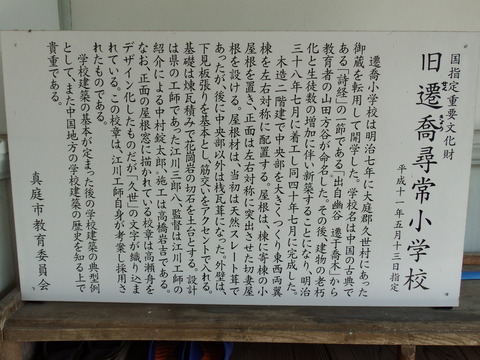 国指定重要文化財
旧遷喬尋常小学校
平成十一年五月十三日指定
遷喬小学校は明治七年に大庭郡久世村にあった
御蔵を転用して開学した。学校名は中国の古典で
ある「詩経」の一節である「出自幽谷 遷于喬木」から
教育者の山田方谷が命名した。その後、建物の老朽
化と生徒数の増加に伴い新築することになり、明治
三十八年七月に着工し同四十年七月に完成した。
木造二階建で中央部を大きくつくり東西両翼
棟を左右対称に配置する。屋根は、棟に寄棟の小
屋根を置き、正面は左右対称に突出させた切妻屋
根を設ける。屋根材は、当初は天然スレート葺で
あったが、後に中央部以外は桟瓦葺になった。外壁は、
下見板張りを基本とし、筋交いをアクセントで入れる。
基礎は煉瓦積みで花崗岩の切石を土台とする。設計
は県の工師であった江川三郎八、監督は江川工師の
紹介による中村錠太郎、施工は高橋岩吉である。
なお、正面の屋根窓に描かれている校章は高瀬舟を
デザイン化したものだが「久世」の文字が織り込ま
れている。この校章は、江川工師自身が考案し採用さ
れたものである。
学校建築の基本が定まった後の学校建築の典型例
として、また中国地方の学校建築の歴史を知る上で
貴重である。
真庭市教育委員会